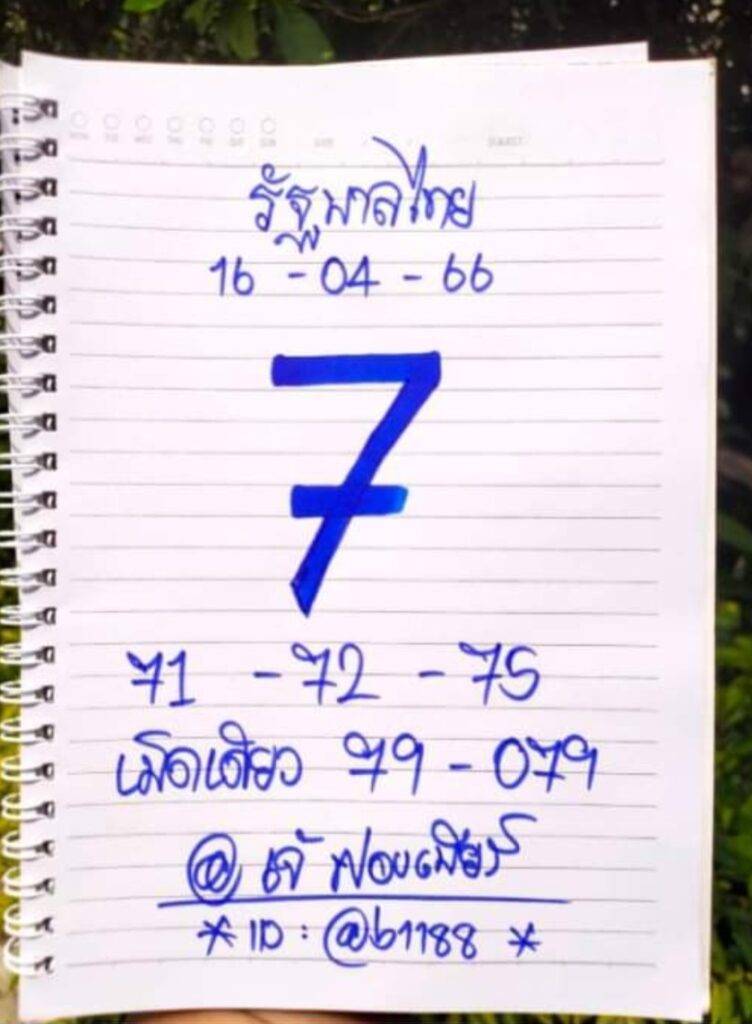 รัฐบาลไทย
16 - 04 - 66
7
71 - 72 - 75
เม็ดเดียว 79 - 079
@ เจ๊ ฟองเบียร์
* ID : @b1188 *